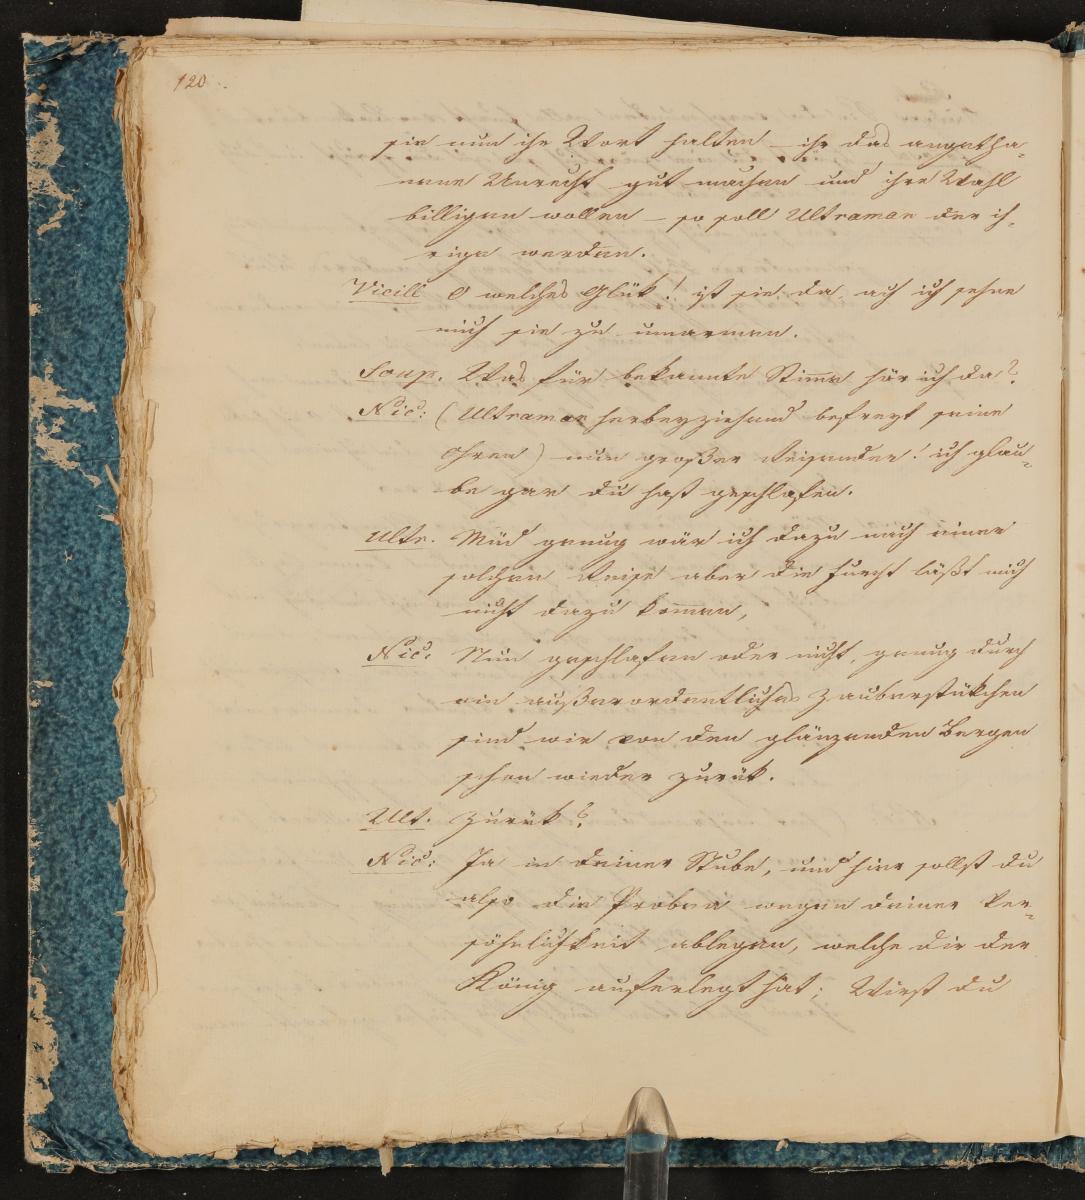 120.
sie nun ihr Wort halten – ihr das angetha-
nene Unrecht gut machen und ihre Wahl
billigen wollen – so soll Ultraman der ih-
rige werden.
Vicill O welches Glük! ist sie da, ach ich sehne
mich sie zu umarmen.
Soup. Was für bekannte Stimme hör ich da?
Nic: (Ultraman herbeyziehend befreyt seine
Ohren) nun großer Reisender! ich glau-
be gar du hast geschlafen.
Ultr. Müd genug wär ich dazu nach einer
solchen Reise aber die Furcht läßt mich
nicht dazu kommen,
Nic: Nun geschlafen oder nicht, genug durch
ein außerordentliches Zauberstükchen
sind wir von den glänzenden Bergen
schon wieder zurük.
Ult. Zurük?
Nic: Ja in deiner Stube, und hier sollst du
also die Proben wegen deiner Ver-
söhnlichkeit ablegen, welche dir der
König auferlegt hat; Wirst du